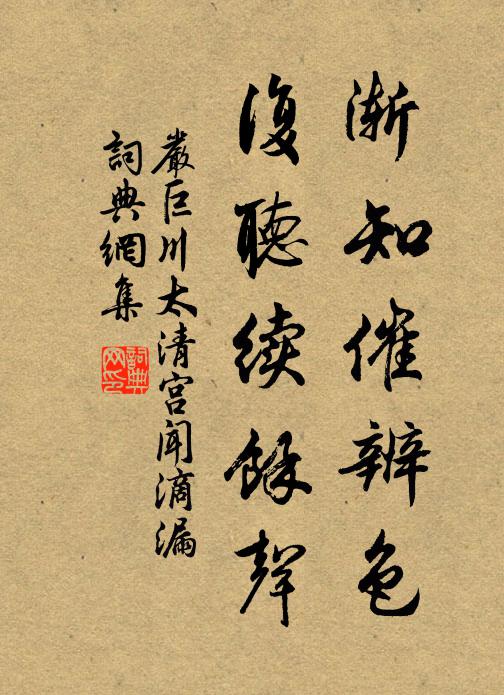 漸知催辨色
復聽續餘聲
嚴巨川太清宮聞滴漏
詞典網集
詞典
网印